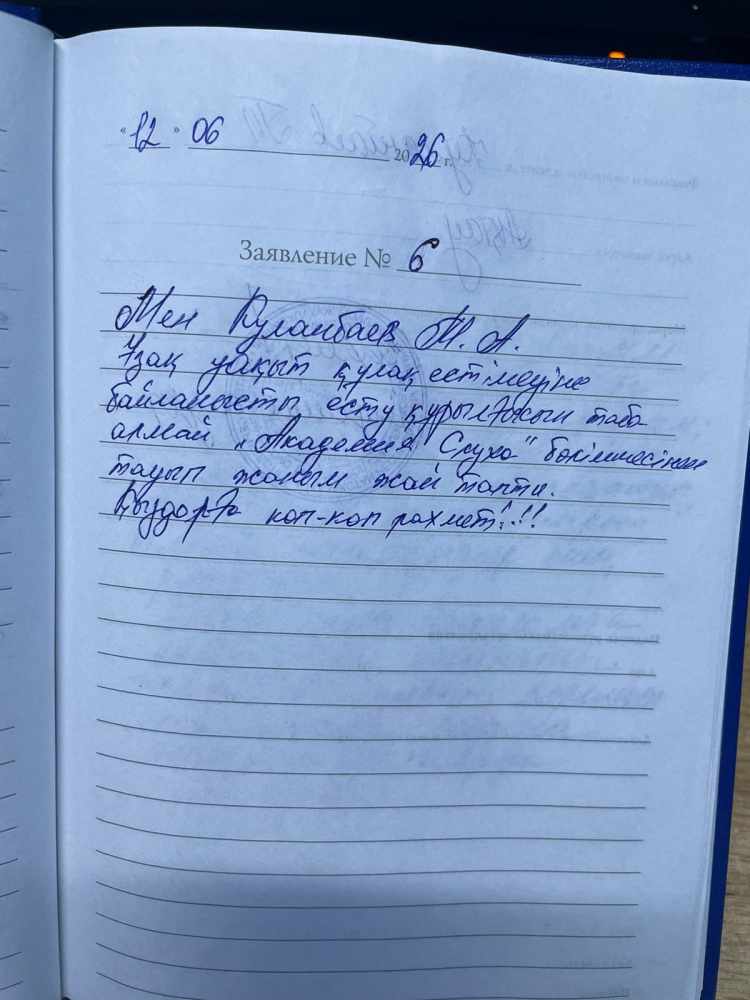 "12" 06 2026 г.
Заявление № 6
Мен Куланбаев Т. А.
Ұзақ уақыт құлақ естімеуіне
байланысты есту құрылғысын таба
алмай "Академия Слуха" бөлімшесінен
тауып жаным жай тапты.
Қыздарға коп-коп рахмет!!!